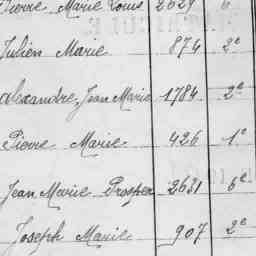 Pierre Marie Louis 2029
Julien Marie 874 2e
Alexandre, Jean Marie 1784 2e
Pierre Marie 426 1e
Jean Marie Prosper 2631 6e
Joseph Marie 907 2e